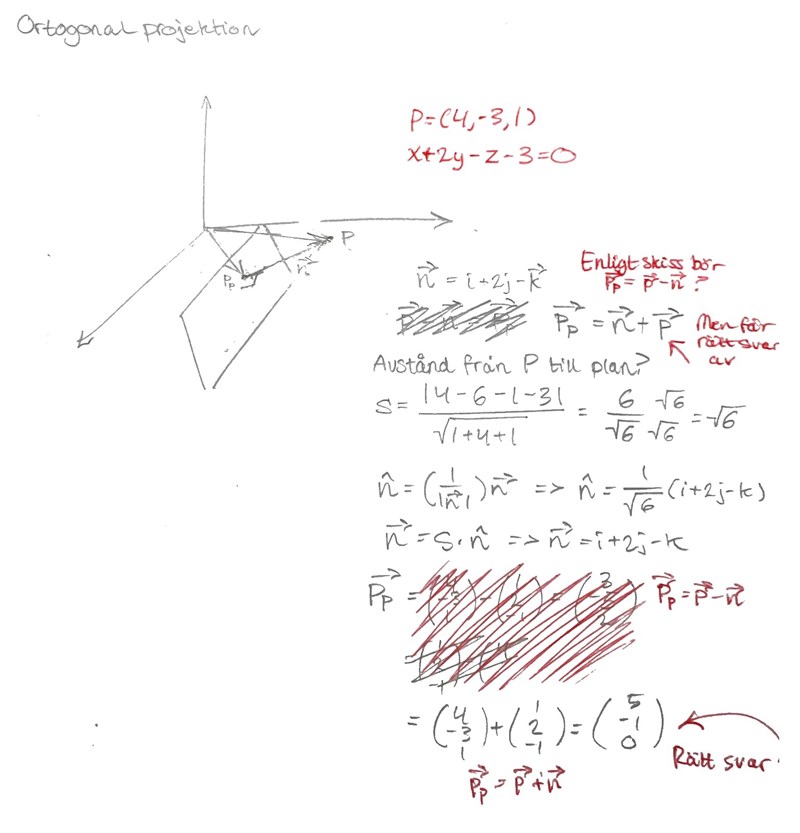 Ortogonal projektion
P=(4,-3,1)
x+2y-z-3=0
P
Pₚ
n⃗
n⃗ = i+2j-k⃗
Enligt skiss bör
P⃗ₚ = p⃗-n⃗ ?
P⃗ₚ = n⃗+p⃗
Men får
rätt svar
av
Avstånd från P till plan?
S = |4-6-1-3| / √1+4+1 = 6/√6 √6/√6 = √6
n̂ = (1/|n⃗|)n⃗ => n̂ = 1/√6 (i+2j-k)
n⃗ = S·n̂ => n⃗ = i+2j-k
P⃗ₚ =
P⃗ₚ = P⃗-n⃗
= (4 -3 1) + (1 2 -1) = (5 -1 0)
Rätt svar
P⃗ₚ = P⃗+n⃗